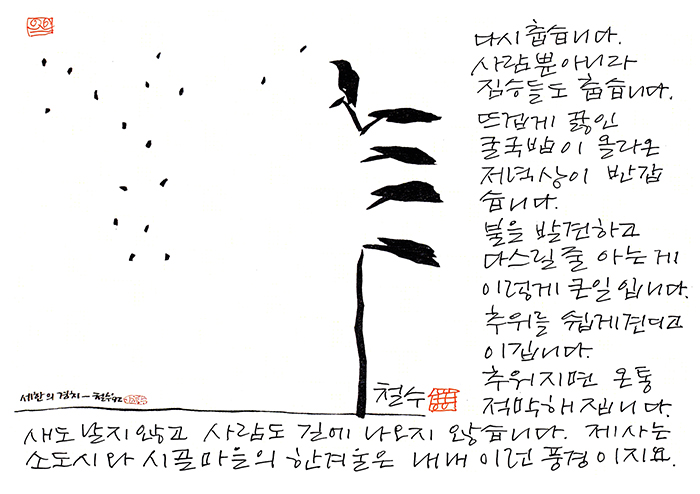 다시 춥습니다.
사람뿐아니라
짐승들도 춥습니다.
뜨겁게 끓인
굴국밥이 올라온
저녁상이 반갑
습니다.
불을 발견하고
다스릴줄 아는게
이렇게 큰일입니다.
추위를 쉽게견디고
이깁니다.
추워지면 온통
적막해집니다.
세한의경치-철수92
철수
새도 날지않고 사람도 길에 나오지 않습니다. 제사는
소도시와 시골마을의 한겨울은 내내 이런 풍경이지요.